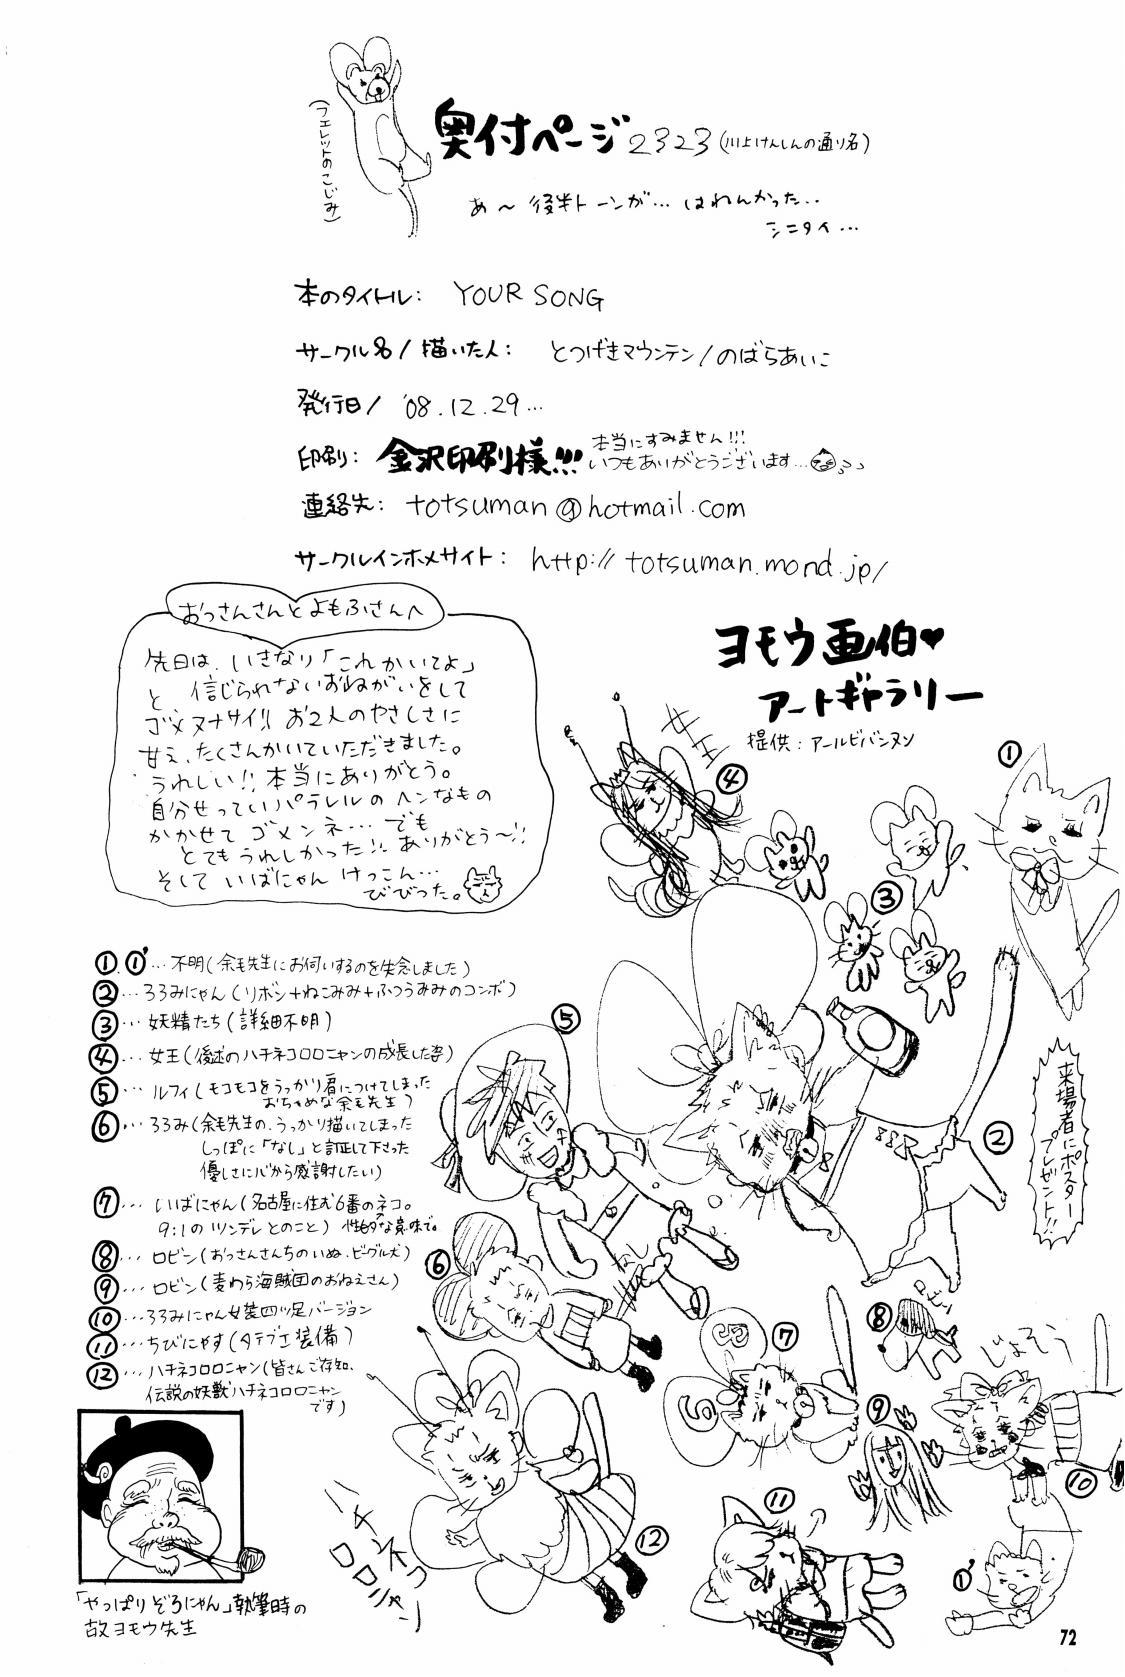 (フェレットのこじみ)
奥付ページ 2323(川上けんしんの通り名)
あ〜後半トーンが… はれんかった‥
シニタイ…
本のタイトル: YOUR SONG
サークル名/描いた人: とつげきマウンテン/のばらあいこ
発行日/ '08.12.29…
印刷: 金沢印刷様!!!
本当にすみません!!!
いつもありがとうございます…
連絡先: totsuman@hotmail.com
サークルインホメサイト: http://totsuman.mond.jp/
おっさんさんとよもふさんへ
先日は、いきなり「これかいてよ」
と 信じられないおねがいをして
ゴメヌナサイ!! お2人のやさしさに
甘え、たくさんかいていただきました。
うれしい!! 本当にありがとう。
自分せっていパラレルのヘンなもの
かかせてゴメンネ… でも
とてもうれしかった!! ありがとう〜!!
そして いばにゃん けっこん…
びびった。
ヨモウ画伯♥
アートギャラリー
提供:アールビバンヌン
女王
①
④
③
⑤
②
来場者にポスター
プレゼント!!
①.①'…不明(余毛先生にお伺いするのを失念しました)
②…ろろみにゃん(リボン+ねこみみ+ふつうみみのコンボ)
③…妖精たち(詳細不明)
④…女王(後述のハチネコロロニャンの成長した姿)
⑤…ルフィ(モコモコをうっかり肩につけてしまった
おちゃめな余毛先生)
⑥…ろろみ(余毛先生の、うっかり描いてしまった
しっぽに「なし」と訂正して下さった
優しさに心から感謝したい)
⑦…いばにゃん(名古屋に住む6番のネコ。
9:1のツンデレとのこと) 性的な意味で。
⑧…ロビン(おっさんさんちのいぬ、ビーグル犬)
⑨…ロビン(麦わら海賊団のおねえさん)
⑩…ろろみにゃん女装四ツ足バージョン
⑪…ちびにゃす(タテブエ装備)
⑫…ハチネコロロニャン(皆さんご存知、
伝説の妖獣ハチネコロロニャン
です)
なし
⑥
⑦
6
ロビン
⑧
じょそう
⑨
⑩
⑪
⑫
①'
ハチネコ
ロロニャン
「やっぱりぞろにゃん」執筆時の
故ヨモウ先生
72